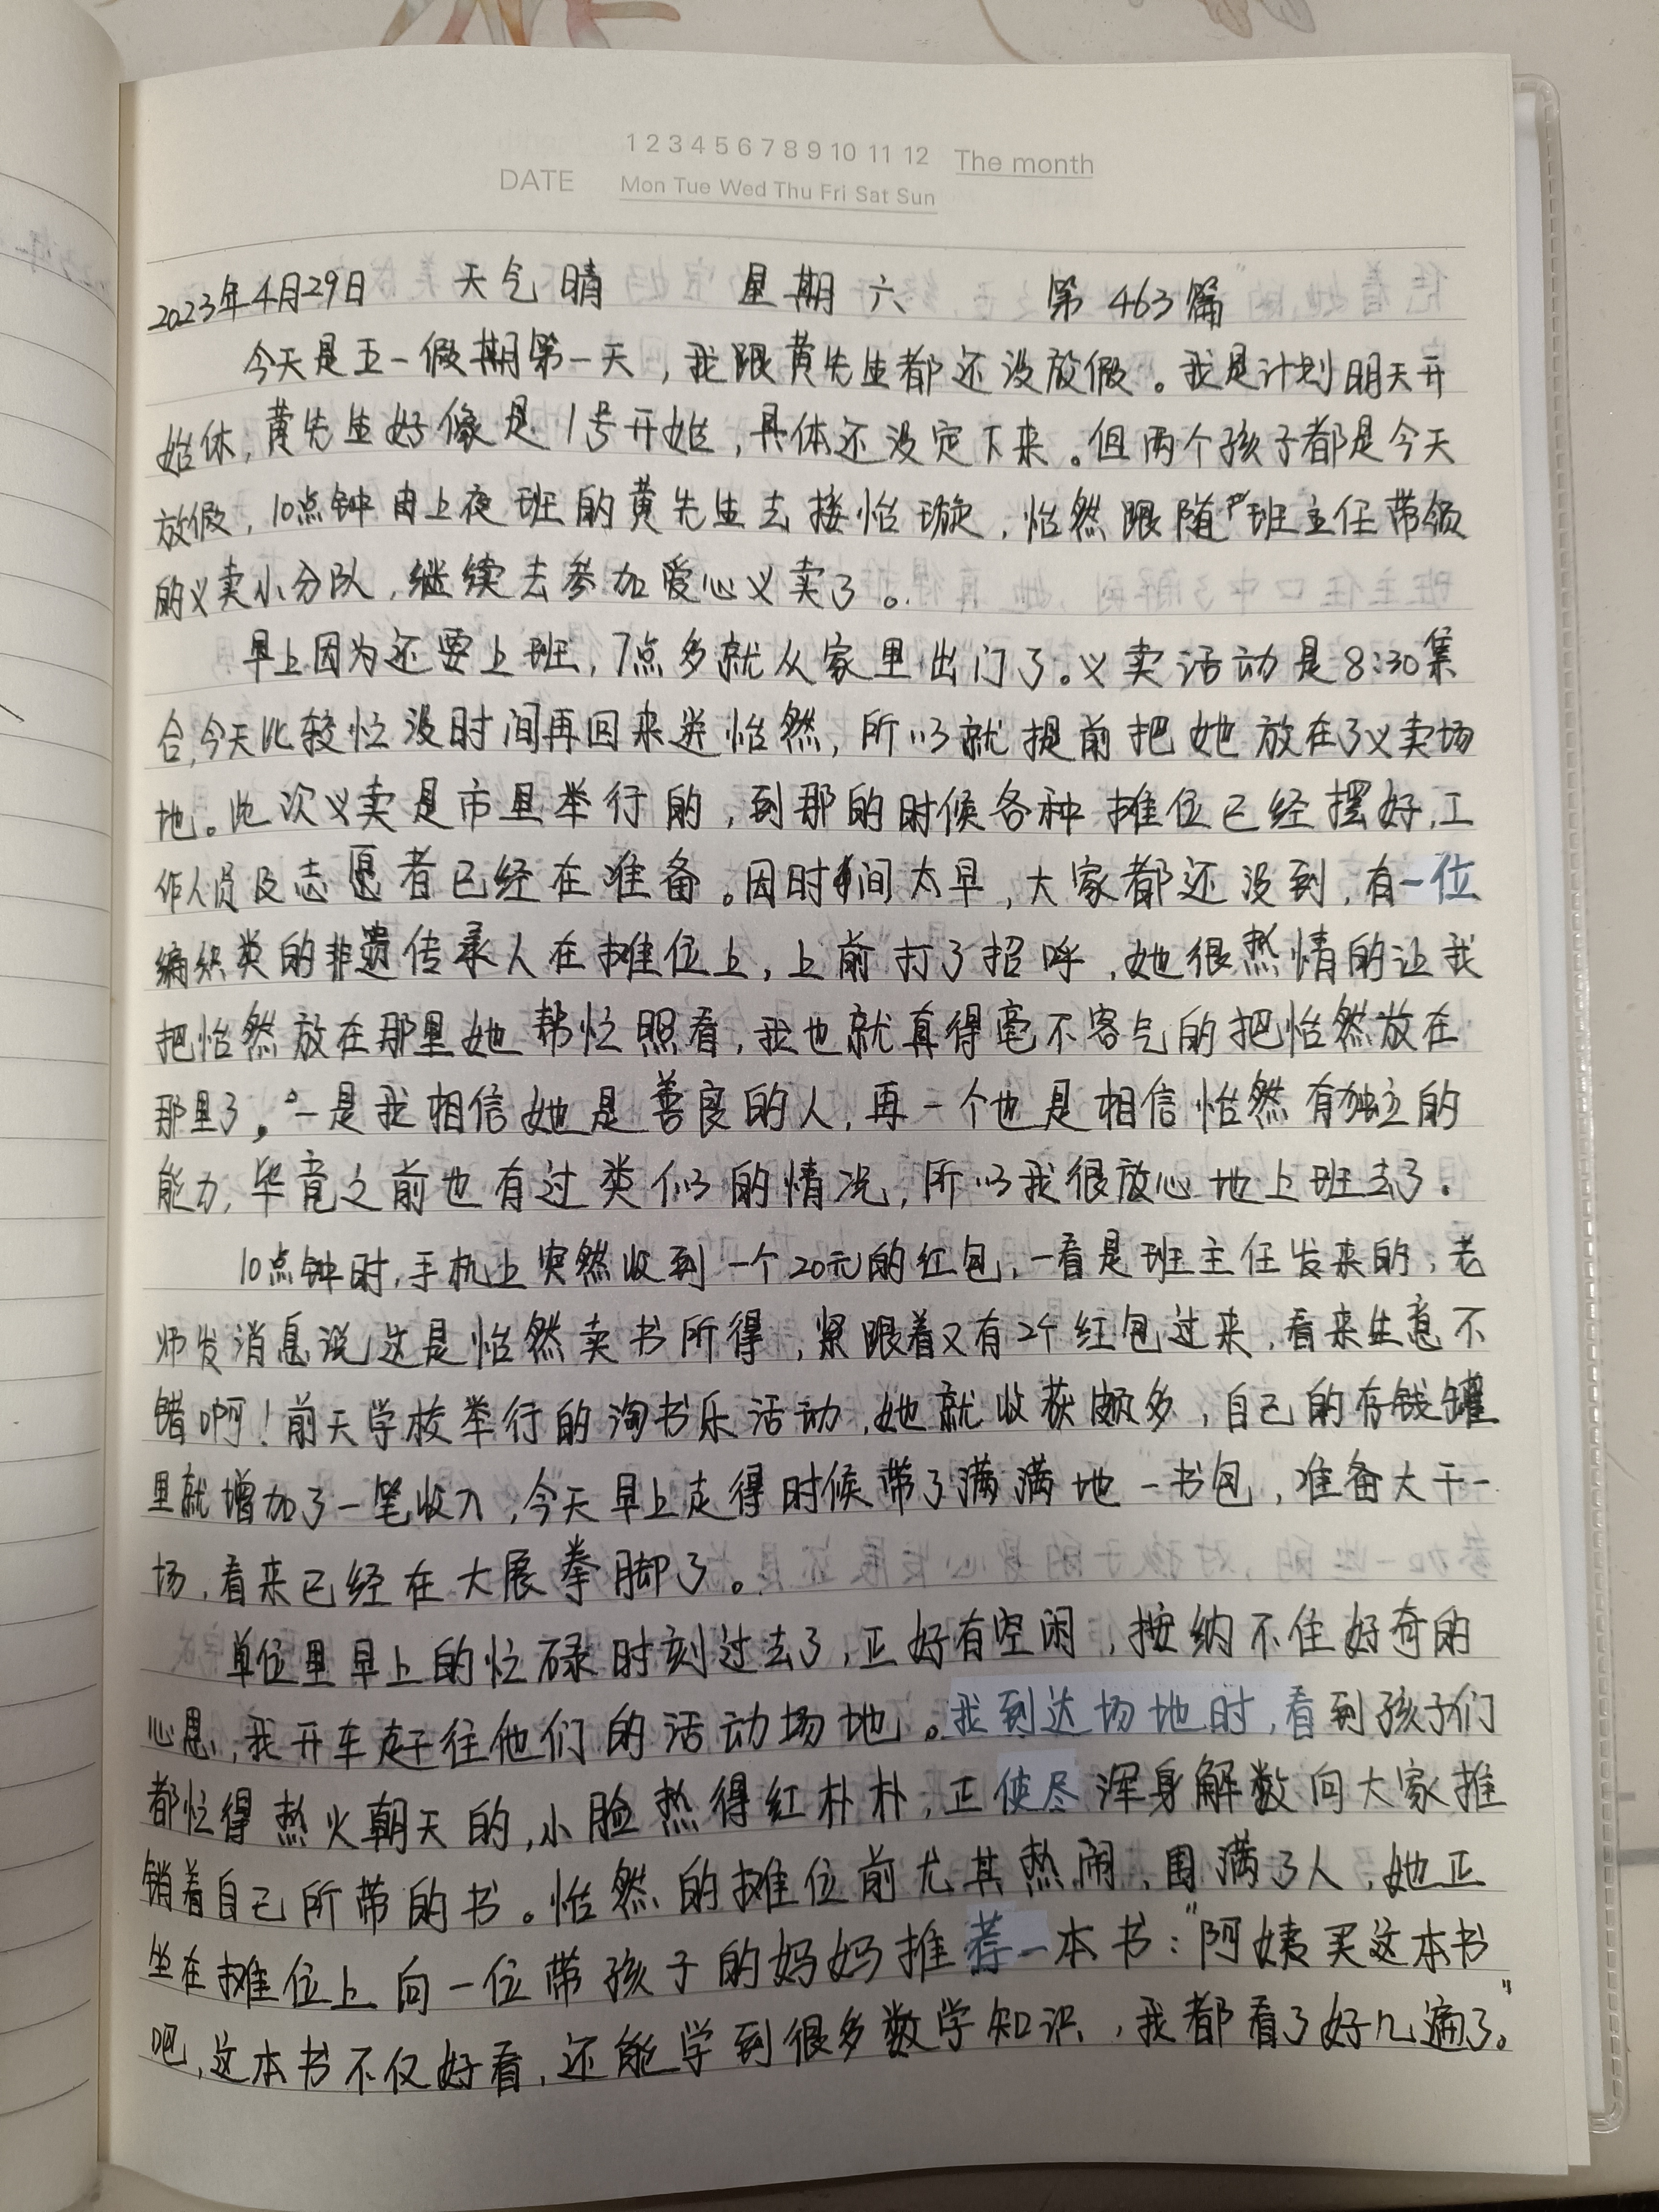 1 2 3 4 5 6 7 8 9 10 11 12 The month
DATE Mon Tue Wed Thu Fri Sat Sun
2023年4月29日 天气晴 星期六 第463篇
今天是五一假期第一天，我跟黄先生都还没放假。我是计划明天开
始休，黄先生好像是1号开始，具体还没定下来。但两个孩子都是今天
放假，10点钟由上夜班的黄先生去接怡璇，怡然跟随班主任带领
的义卖小分队，继续去参加爱心义卖了。
早上因为还要上班，7点多就从家里出门了。义卖活动是8:30集
合，今天比较忙没时间再回来送怡然，所以就提前把她放在了义卖场
地。此次义卖是市里举行的，到那的时候各种摊位已经摆好，工
作人员及志愿者已经在准备。因时间太早，大家都还没到，有一位
编织类的非遗传承人在摊位上，上前打了招呼，她很热情的让我
把怡然放在那里她帮忙照看，我也就真得毫不客气的把怡然放在
那里了。一是我相信她是善良的人，再一个也是相信怡然有独立的
能力，毕竟之前也有过类似的情况，所以我很放心地上班去了。
10点钟时，手机上突然收到一个20元的红包，一看是班主任发来的，老
师发消息说这是怡然卖书所得，紧跟着又有2个红包过来，看来生意不
错啊！前天学校举行的淘书乐活动，她就收获颇多，自己的存钱罐
里就增加了一笔收入，今天早上走得时候带了满满地一书包，准备大干一
场，看来已经在大展拳脚了。
单位里早上的忙碌时刻过去了，正好有空闲，按纳不住好奇的
心思，我开车赶往他们的活动场地。我到达场地时，看到孩子们
都忙得热火朝天的，小脸热得红朴朴，正使尽浑身解数向大家推
销着自己所带的书。怡然的摊位前尤其热闹，围满了人，她正
坐在摊位上向一位带孩子的妈妈推荐一本书：“阿姨买这本书
吧，这本书不仅好看，还能学到很多数学知识，我都看了好几遍了。”